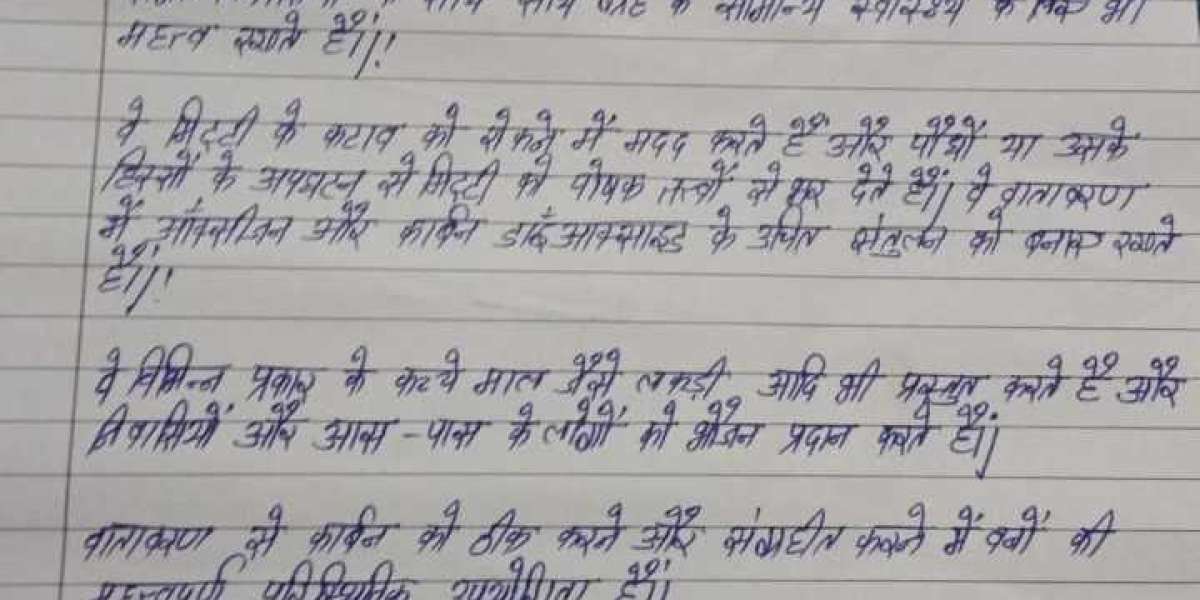 साथ साथ ग्रह के सामान्य स्वास्थ्य के लिए भी
महत्व रखते हैं।!
वे मिट्टी के कटाव को रोकने में मदद करते हैं और पौधों या उसके
हिस्सों के अपघटन से मिट्टी को पोषक तत्वों से भर देते हैं। वे वातावरण
में ऑक्सीजन और कार्बन डाईआक्साइड के उचित संतुलन को बनाए रखते
हैं।!
वे विभिन्न प्रकार के कच्चे माल जैसे लकड़ी आदि भी प्रस्तुत करते है और
निवासियों और आस-पास के लोगों को भोजन प्रदान करते हैं।
वातावरण से कार्बन को ठीक करने और संग्रहीत करने में वनों की
महत्त्वपूर्ण पारिस्थितिक उपयोगिता हैं।